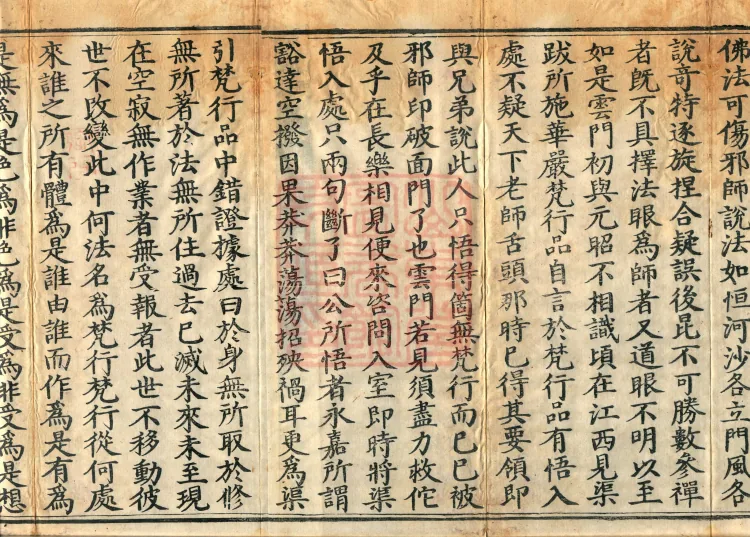 佛法可傷邪師說法如恒河沙各立門風各
說竒特逐旋捏合疑誤後昆不可勝數參禪
者旣不具擇法眼爲師者又道眼不明以至
如是雲門初與元昭不相識頃在江西見渠
跋所施華嚴梵行品自言於梵行品有悟入
處不疑天下老師舌頭那時已得其要領即
與兄弟說此人只悟得箇無梵行而已已被
邪師印破面門了也雲門若見須盡力救佗
及乎在長樂相見便來咨問入室即時將渠
悟入處只兩句斷了曰公所悟者永嘉所謂
豁達空撥因果莽莽蕩蕩招殃禍耳更爲渠
引梵行品中錯證據處曰於身無所取於修
無所著於法無所住過去已滅未來未至現
在空寂無作業者無受報者此世不移動彼
世不改變此中何法名爲梵行梵行從何處
來誰之所有體爲是誰由誰而作爲是有爲
是無爲是色爲非色爲是受爲非受爲是想